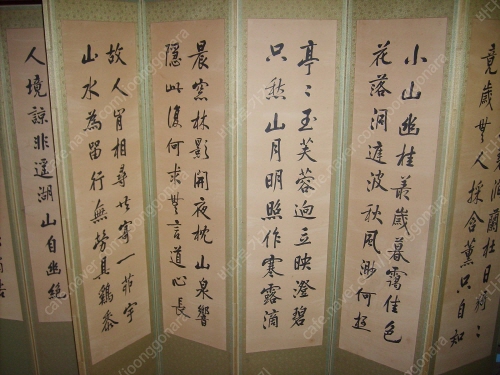 澗蘭杜日猗猗
竟歲無人採含薰只自知
小山幽桂叢歲暮靄佳色
花落洞庭波秋風渺何極
亭〻玉芙蓉迥立映澄碧
只愁山月明照作寒露滴
晨窓林影開夜枕山泉響
隱此復何求無言道心長
故人肯相尋共寄一茆宇
山水為留行無勞具鷄黍
人境諒非遙湖山自幽絕